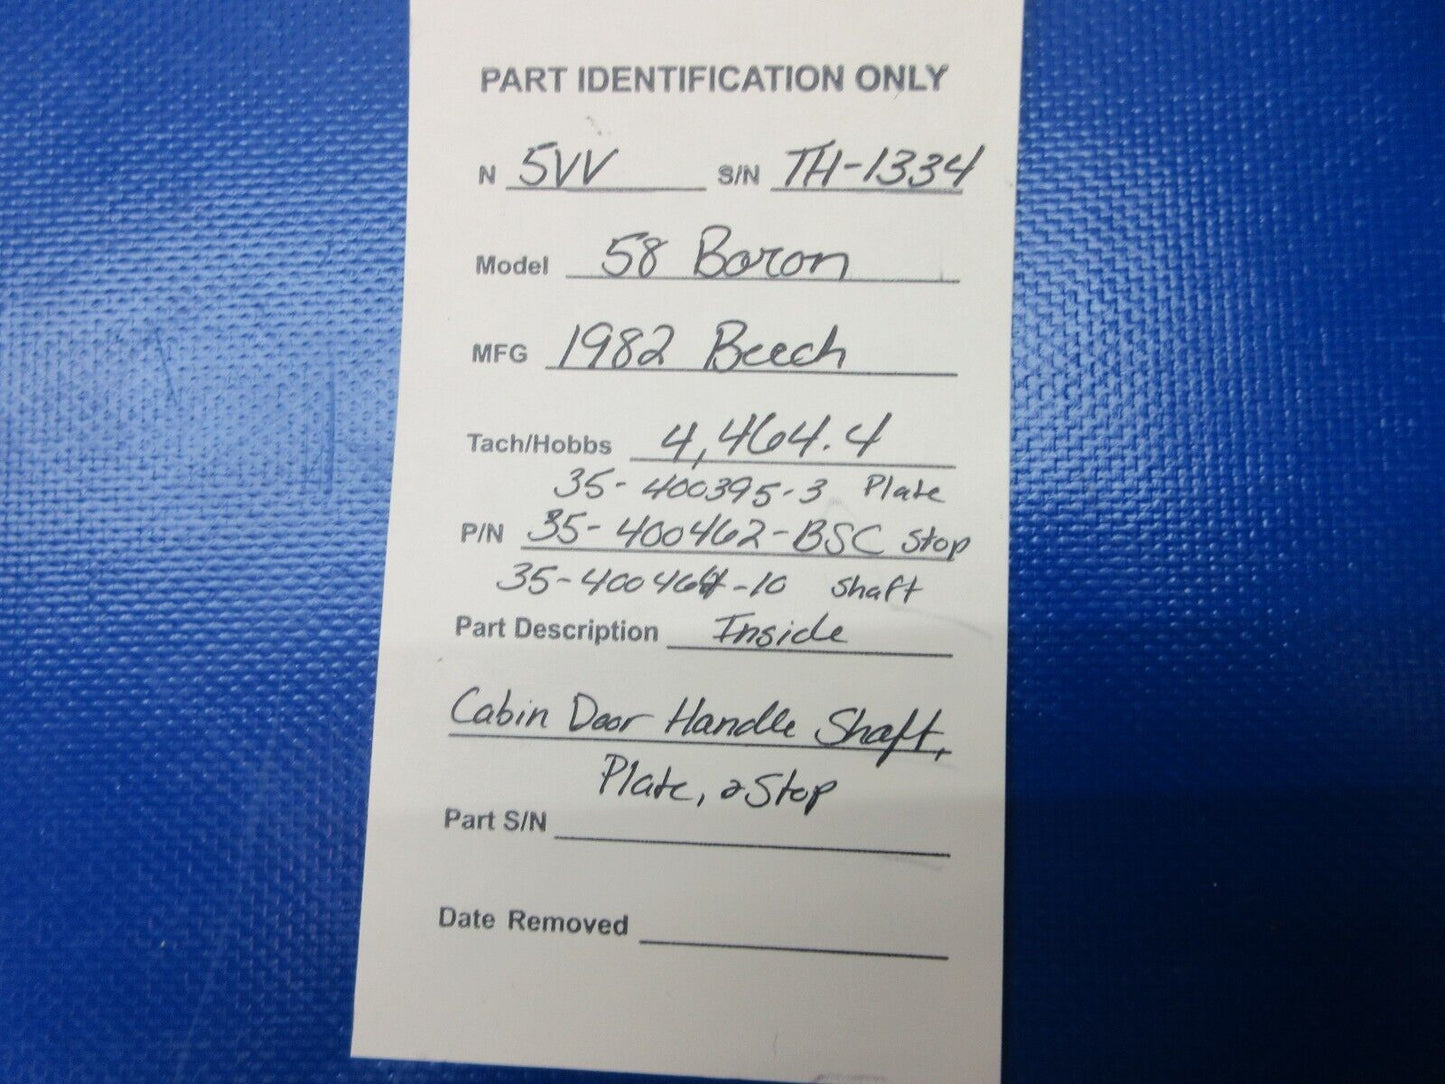 PART IDENTIFICATION ONLY
N 5VV S/N TH-1334
Model 58 Baron
MFG 1982 Beech
Tach/Hobbs 4,464.4
35-400395-3 Plate
P/N 35-400462-BSC Stop
35-400464-10 Shaft
Part Description Inside
Cabin Door Handle Shaft,
Plate, & Stop
Part S/N
Date Removed